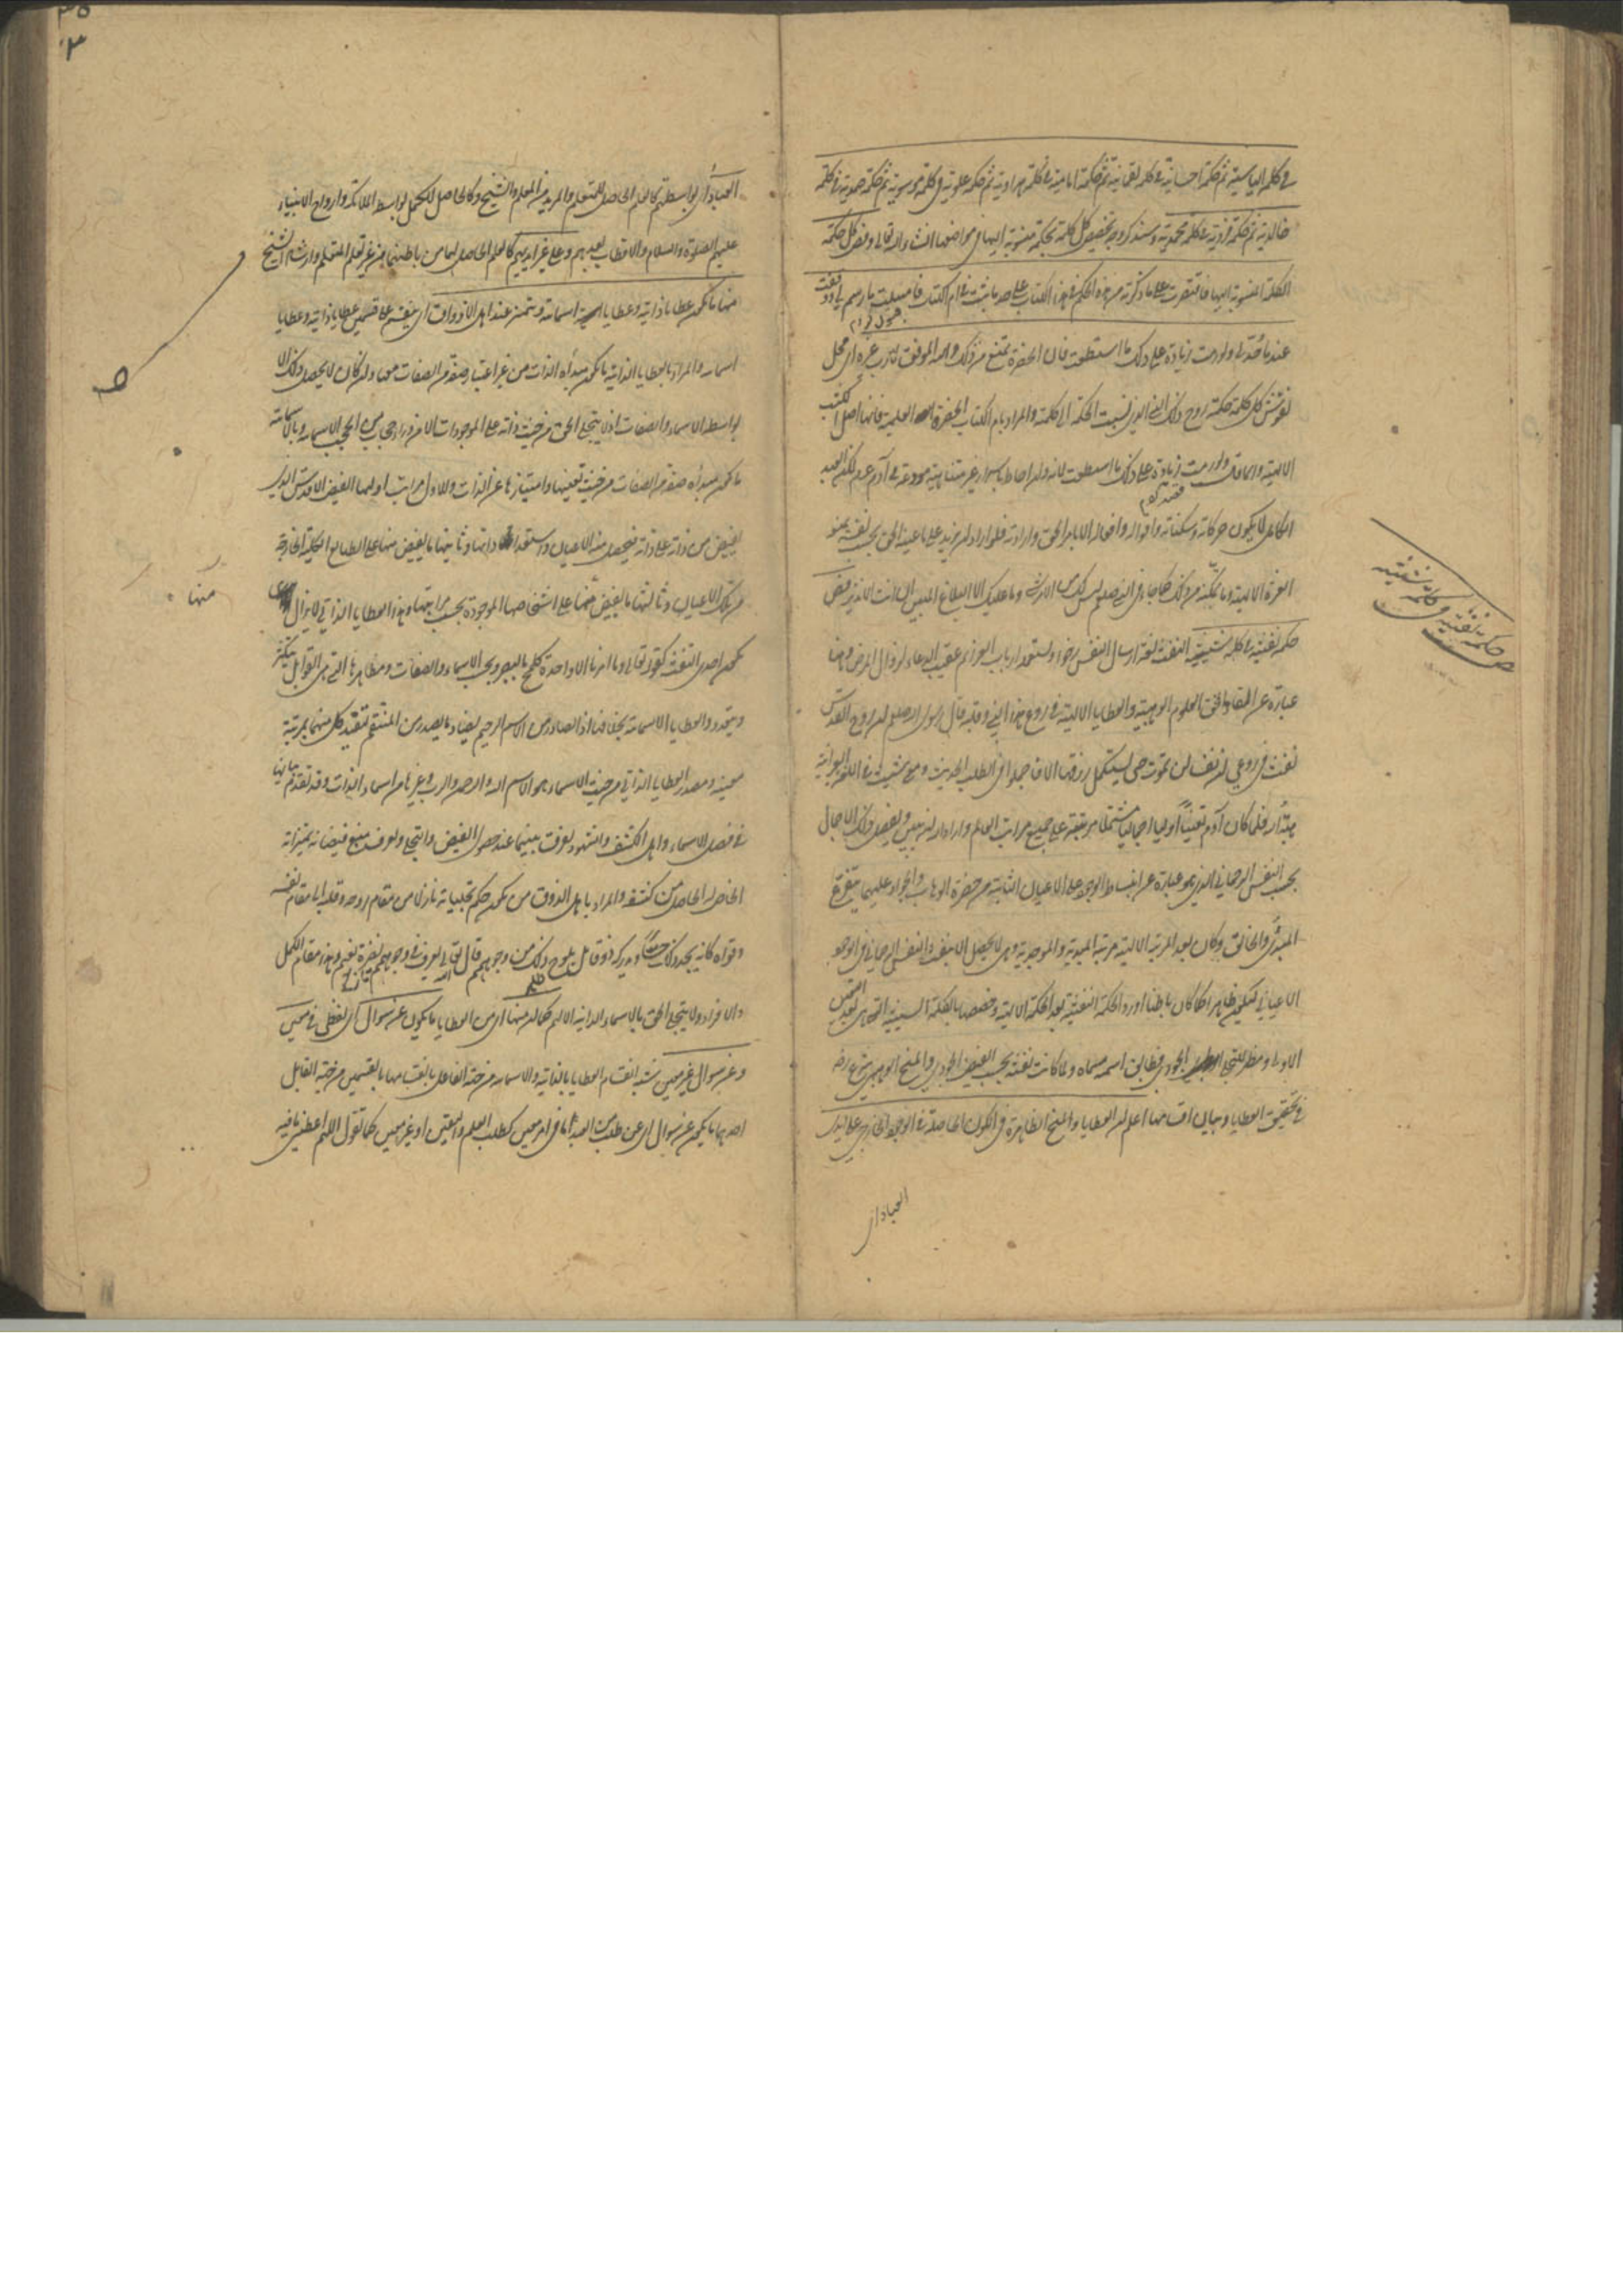 في كلمة الياسية ثم حكمة احسانية في كلمة لقمانية ثم حكمة امامية في كلمة هارونية ثم حكمة علوية في كلمة موسوية ثم حكمة صمدية في كلمة
خالدية ثم حكمة فردية في كلمة محمدية وسنذكر وجه تخصيص كل كلمة بحكمة منسوبة اليها في مواضعها انشاء الله تعالى وفص كل حكمة
الكلمة المنسوبة اليها فاقتصرت على ما ذكرته من هذه الحكم في هذا الكتاب على حد ما ثبت في ام الكتاب فامتثلت ما رسم لي ووقفت
عند ما حد لي ولو رمت زيادة على ذلك ما استطعت فان الحضرة تمنع من ذلك والله الموفق لا رب غيره اي محل
نقوش كل كلمة حكمة روح ذلك النبي الذي نسبت الحكمة الى كلمته والمراد بام الكتاب الحضرة العلمية فانها اصل الكتب
الالهية وانما قال ولو رمت زيادة على ذلك ما استطعت لانه وان احاط باسرار غير متناهية مودعة في آدم عم لكن العبد
الكامل لا يكون حركاته وسكناته واقواله وافعاله الا بامر الحق وارادته فلو اراد ان يزيد على ما عينه الحق بحسب نفسه يمنعه
الغيرة الالهية وما يمكنه من ذلك كما جاء في النبي صلعم ليس لك من الامر شيء وما عليك الا البلاغ المبين ان انت الا نذير فص
حكمة نفثية في كلمة شيثية النفث لغة ارسال النفس رخوا ويستعمله ارباب العزائم عقيب الدعاء لزوال المرض وهنا
عبارة عن القاء الحق العلوم الوهبية والعطايا الالهية في روع هذا النبي وقلبه قال رسول الله صلعم ان روح القدس
نفث في روعي ان نفسا لن تموت حتى تستكمل رزقها الا فاجملوا في الطلب الحديث ومعنى شيث في اللغة العبرانية
هبة الله فلما كان آدم تعينا اوليا اجماليا مشتملا مرتبته على جميع مراتب العالم واراد الله ان يبين ويفصل ذلك الاجمال
بحسب النفس الرحماني الذي هو عبارة عن انبساط الوجود على الاعيان الثابتة من حضرة الوهاب والجواد عليهما يتفرع
المبدئ والخالق وكان بعد المرتبة الالهية مرتبة المبدئية والموجدية وهي لا يحصل الا بنفث النفس الرحماني في الوجود
الاعياني ليكون ظاهرا كما كان باطنا اورد الحكمة النفثية بعد الحكمة الالهية وخصصها بالكلمة الشيثية التي هي بعد التعين
الاول ومظهر للتجلي الجودي فطابق اسمه مسماه ولما كانت نفثه بحسب الفيض الجودي والمنح الوهبي شرع رضه
في تحقيق العطايا وبيان اقسامها اعلم ان العطايا والمنح الظاهرة في الكون الحاصلة في الوجود الخارجي على ايدي
العباد اي
حكمة نفثية في كلمة شيثية
العباد اي بواسطتهم كالعلم الحاصل للمتعلم والمريد من المعلم والشيخ وكالحاصل للكمل بواسطة الملائكة وارواح الانبياء
عليهم الصلوة والسلام والاقطاب بعدهم وعلى غير ايديهم كالعلم الحاصل لهما من باطنهما من غير تعليم المتعلم وارشاد الشيخ
منها ما يكون عطايا ذاتية وعطايا اسمائية وتتميز عند اهل الاذواق اي ينقسم على قسمين عطايا ذاتية وعطايا
اسمائية والمراد بالعطايا الذاتية ما يكون مبدأه الذات من غير اعتبار صفة من الصفات معها وان كان لا يحصل ذلك الا
بواسطة الاسماء والصفات اذ لا يتجلى الحق من حيث ذاته على الموجودات الا من وراء حجاب من الحجب الاسمائية وبالاسمائية
ما يكون مبدأه صفة من الصفات من حيث تعينها وامتيازها عن الذات وللاول مراتب اولها الفيض الاقدس الذي
يفيض من ذاته على ذاته فيحصل منه الاعيان واستعداداتها وثانيها ما يفيض منها على الطبايع الكلية الخارجة
من تلك الاعيان وثالثها ما يفيض منها على اشخاصها الموجودة بحسب مراتبها وهذه العطايا الذاتي لا يزال
يكون احدي النعت كقوله تعالى وما امرنا الا واحدة كلمح بالبصر وبحسب الاسماء والصفات ومظاهرها التي هي القوابل يتكثر
ويتعدد والعطايا الاسمائية بخلافها اذ الصادر من الاسم الرحيم يضاد ما يصدر من المنتقم لتقيد كل منهما بمرتبة
معينة ومصدر العطايا الذاتي من حيث الاسماء هو الاسم الله والرحمن والرب وغيرها من اسماء الذات وقد تقدم بيانها
في فصل الاسماء واهل الكشف والشهود يعرف بينهما عند حصول الفيض والتجلي ويعرف منبع فيضانه بميزانه
الخاص له الحاصل من كشفه والمراد باهل الذوق من يكون حكم تجلياته نازلا من مقام روحه وقلبه الى مقام نفسه
وقواه كانه يجد ذلك حسا ويدركه ذوقا بل يلوح ذلك من وجوههم قال تعالى تعرف في وجوههم نضرة النعيم وهذا مقام الكمل
والافراد ولا يتجلى الحق بالاسماء الذاتية الا لهم كما ان منها اي من العطايا ما يكون عن سوال اي لفظي في معين
وعن سوال غير معين شبه انقسام العطايا بالذاتية والاسمائية من جهة الفاعل بانقسامها بالقسمين من جهة القابل
احدهما ما يكون عن سوال اي عن طلب من العبد اما في امر معين كطلب العلم واليقين او غير معين كما تقول اللهم اعطني ما فيه
منها